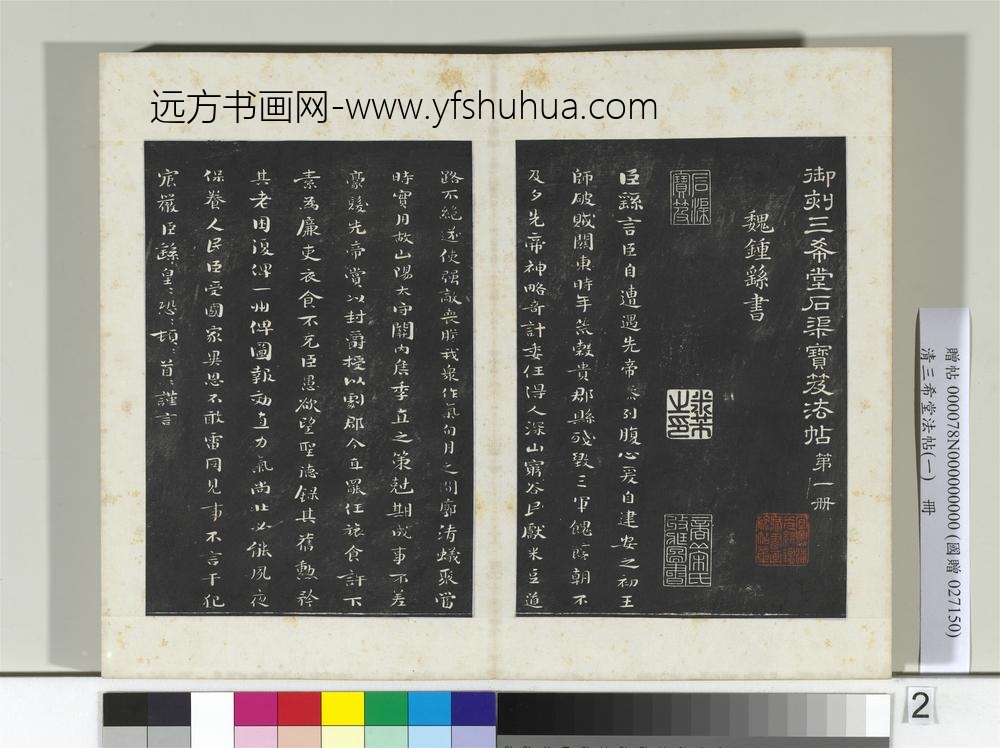 远方书画网-www.yfshuhua.com
御刻三希堂石渠寶笈法帖第一册
魏鍾繇書
石渠寶笈
臣繇言臣自遭遇先帝忝列腹心爰自建安之初王
師破賊關東時年荒穀貴郡縣殘毀三軍餽饟朝不
及夕先帝神略奇計委任得人深山窮谷民獻米豆道
路不絕遂使强敵喪膽我衆作氣旬月之間廓清蟻聚當
時實用故山陽太守關内侯季直之策剋期成事不差
豪髮先帝賞以封爵授以劇郡今直罷任旅食許下
素爲廉吏衣食不充臣愚欲望聖德錄其舊勳矜
其老困復俾一州俾圖報効直力氣尚壯必能夙夜
保養人民臣受國家異恩不敢雷同見事不言干犯
宸嚴臣繇皇〻恐〻頓〻首〻謹言
贈帖 000078N000000000 (國贈 027150)
清三希堂法帖(一) 冊
2